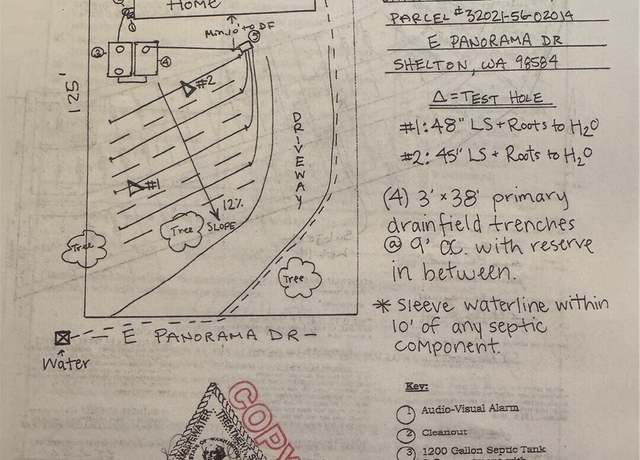 Home
Min 10' to DF
5
3
4
#2
125'
DRIVEWAY
#1
12%
SLOPE
Tree
Tree
Tree
E PANORAMA DR
Water
PARCEL # 32021-56-02014
E PANORAMA DR
SHELTON, WA 98584
Δ = TEST HOLE
#1: 48" LS + Roots to H2O
#2: 45" LS + Roots to H2O
(4) 3' x 38' primary
drainfield trenches
@ 9' O.C. with reserve
in between.
* Sleeve waterline within
10' of any septic
component.
COPY
Key:
1 Audio-Visual Alarm
2 Cleanout
3 1200 Gallon Septic Tank